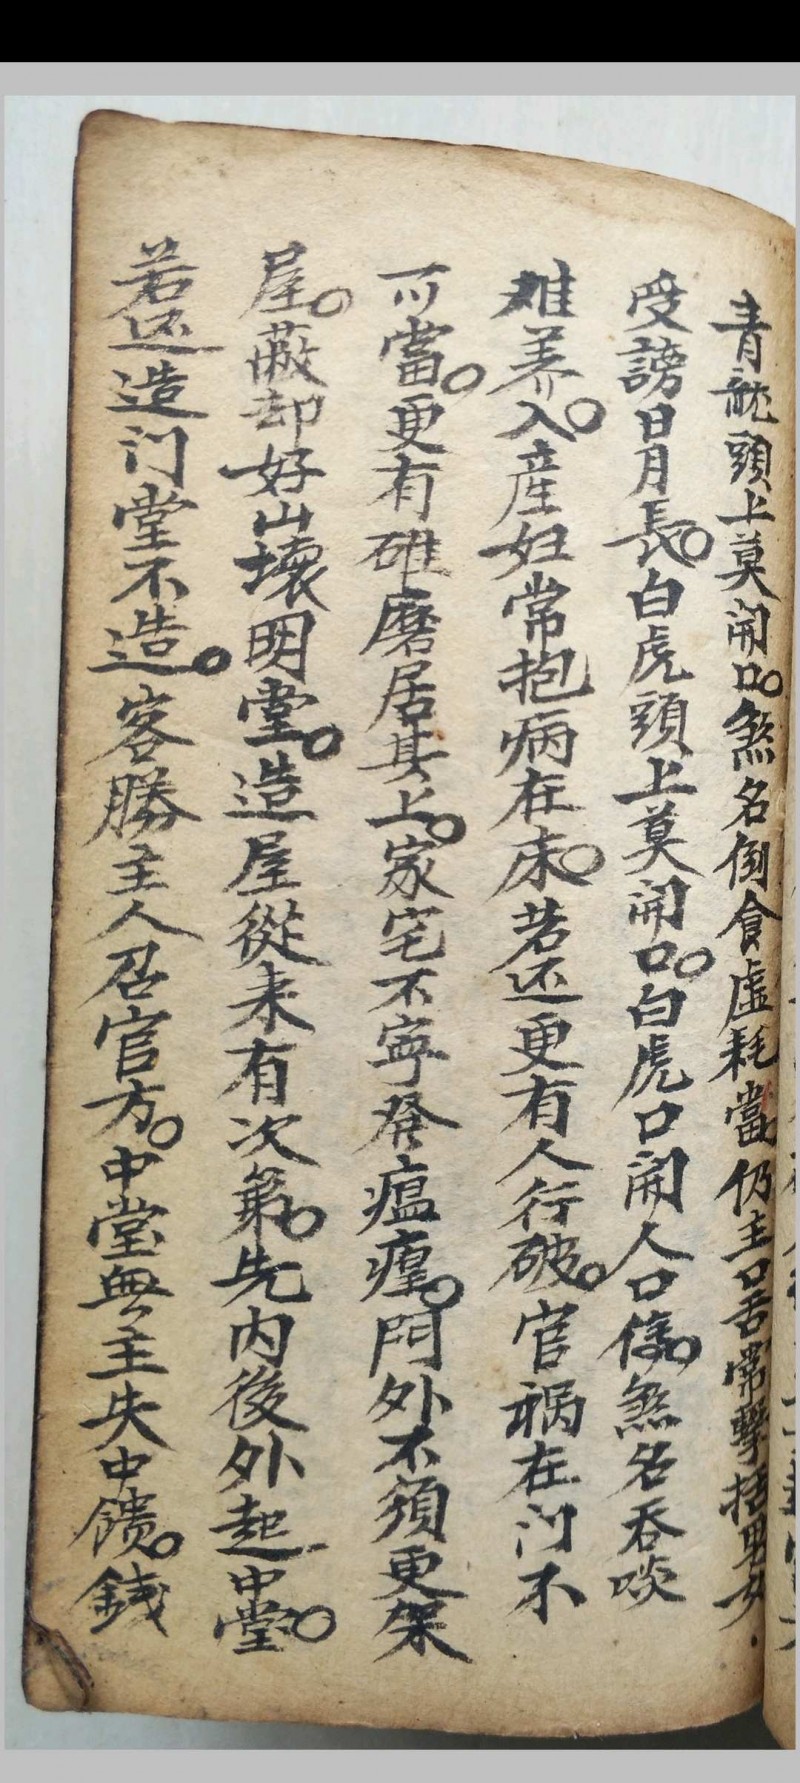 青龍頭上莫開口。煞名倒食虛耗當。仍主口舌常擊括男女
受謗日月長。白虎頭上莫開口。白虎口開人口傷。煞名吞啖
难养人。産妇常抱病在床。若还更有人行破。官祸在门不
可當。更有碓磨居其上。家宅不寧發瘟㾮。門外不須更架
屋。蔽却好山壞明堂。造屋從来有次第。先内後外起中堂。
若还造门堂不造。客勝主人召官方。中堂無主失中饋。錢